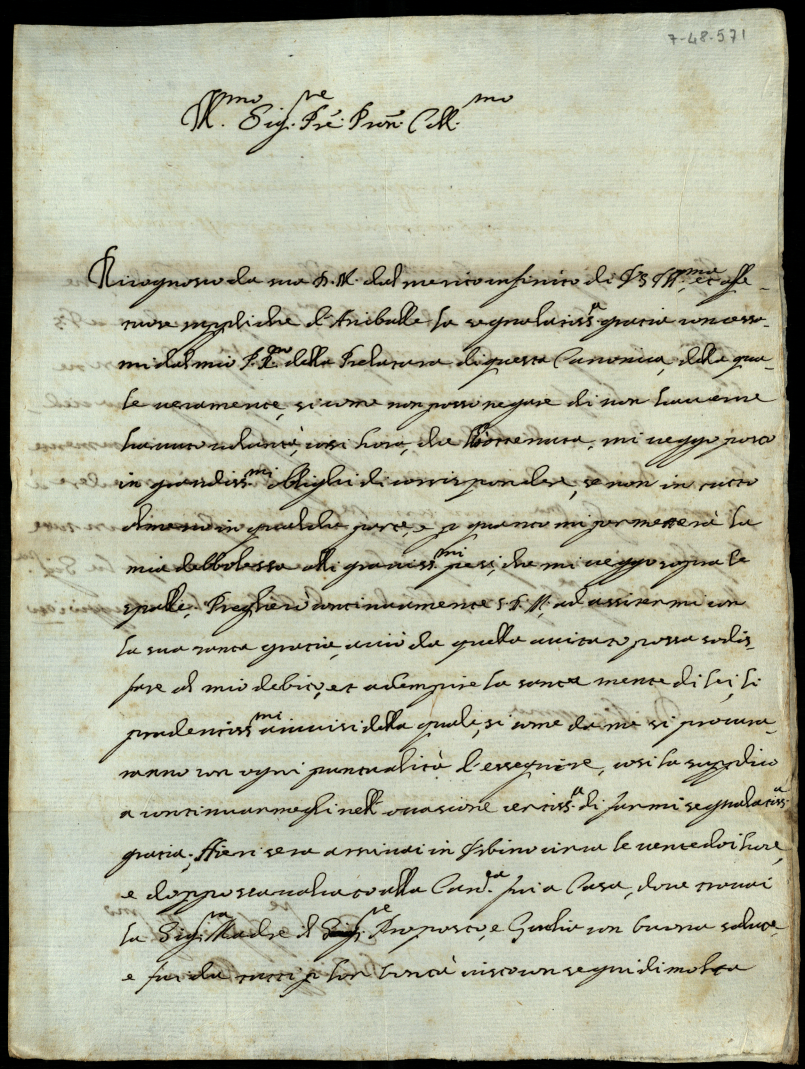 7-48-571
Ill.mo Sig.re Pr̃e Pron. Coll.mo
Ricognosco da sua D. M. dal merito infinito di VS Ill.ma, et affe-
tuose suppliche d'Anibale la segnalatiss.a gratia concessa-
mi dal mio della Prelatura di questa Canonica, della qua-
le veramente, si come non posso negare di non haverne
havuto, così hora, che l'ho ottenuta, mi veggo posto
in grandiss.mi oblighi di corrispondere, se non in tutto
almeno in qualche parte, e p quanto mi permetterà la
mia debbolessa alli graviss.mi pesi, che mi veggo sopra le
spalle. Pregherò continuamente S. D. M. ad assistermi con
la sua santa gratia, acciò da quella aiutato possa sodis-
fare al mio debito, et adempire la santa mente di lei, li
prudentiss.mi avvisi della quale, si come da me si procura-
ranno con ogni puntualità d'esseguire, così la supplico
a continuarmegli nell'occasione certiss.a di farmi segnalatiss.a
gratia. Hieri sera arrivai in Urbino circa le ventedoi hore,
e doppo scavalcato alla Can.ca fui a Casa, dove trovai
la Sig.ra Madre il Sig.re Proposto, e Giulio con buona salute,
e fui da tutti p lor bontà visto con segni di molta